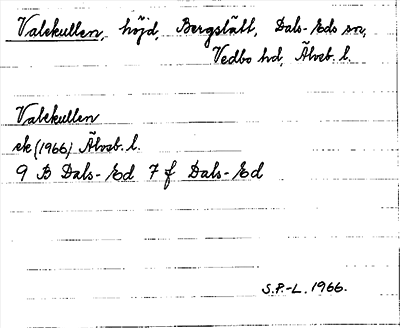 Valekullen, höjd, Bergslätt, Dals-Eds sn,
Vedbo hd, Älvsb. l.
Valekullen
ek (1966) Älvsb. l.
9 B Dals-Ed 7 f Dals-Ed
S.P.-L. 1966.